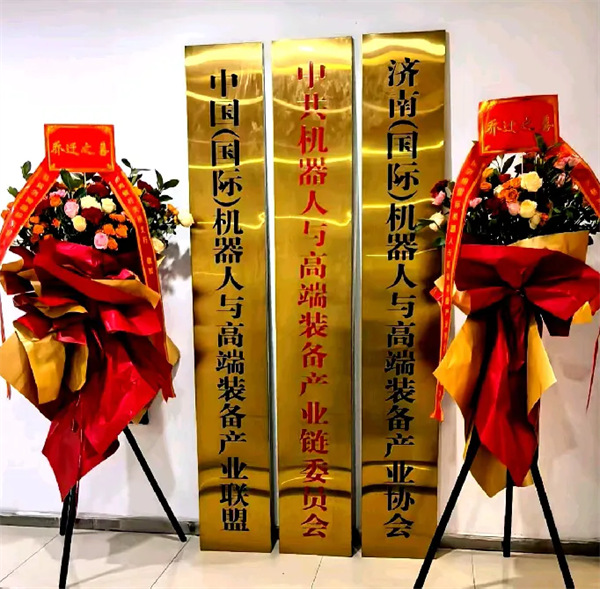 乔迁之喜
中国(国际)机器人与高端装备产业联盟
中共机器人与高端装备产业链委员会
济南(国际)机器人与高端装备产业协会
乔迁之喜